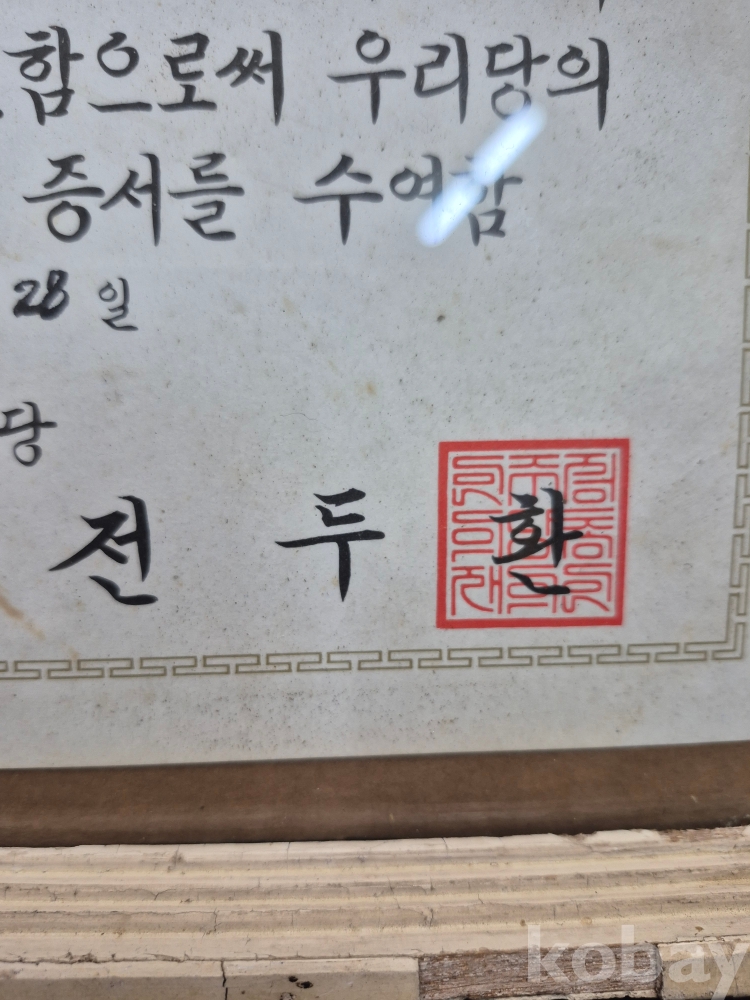 함으로써 우리당의
증서를 수여함
28 일
당
전 두 환
kobay